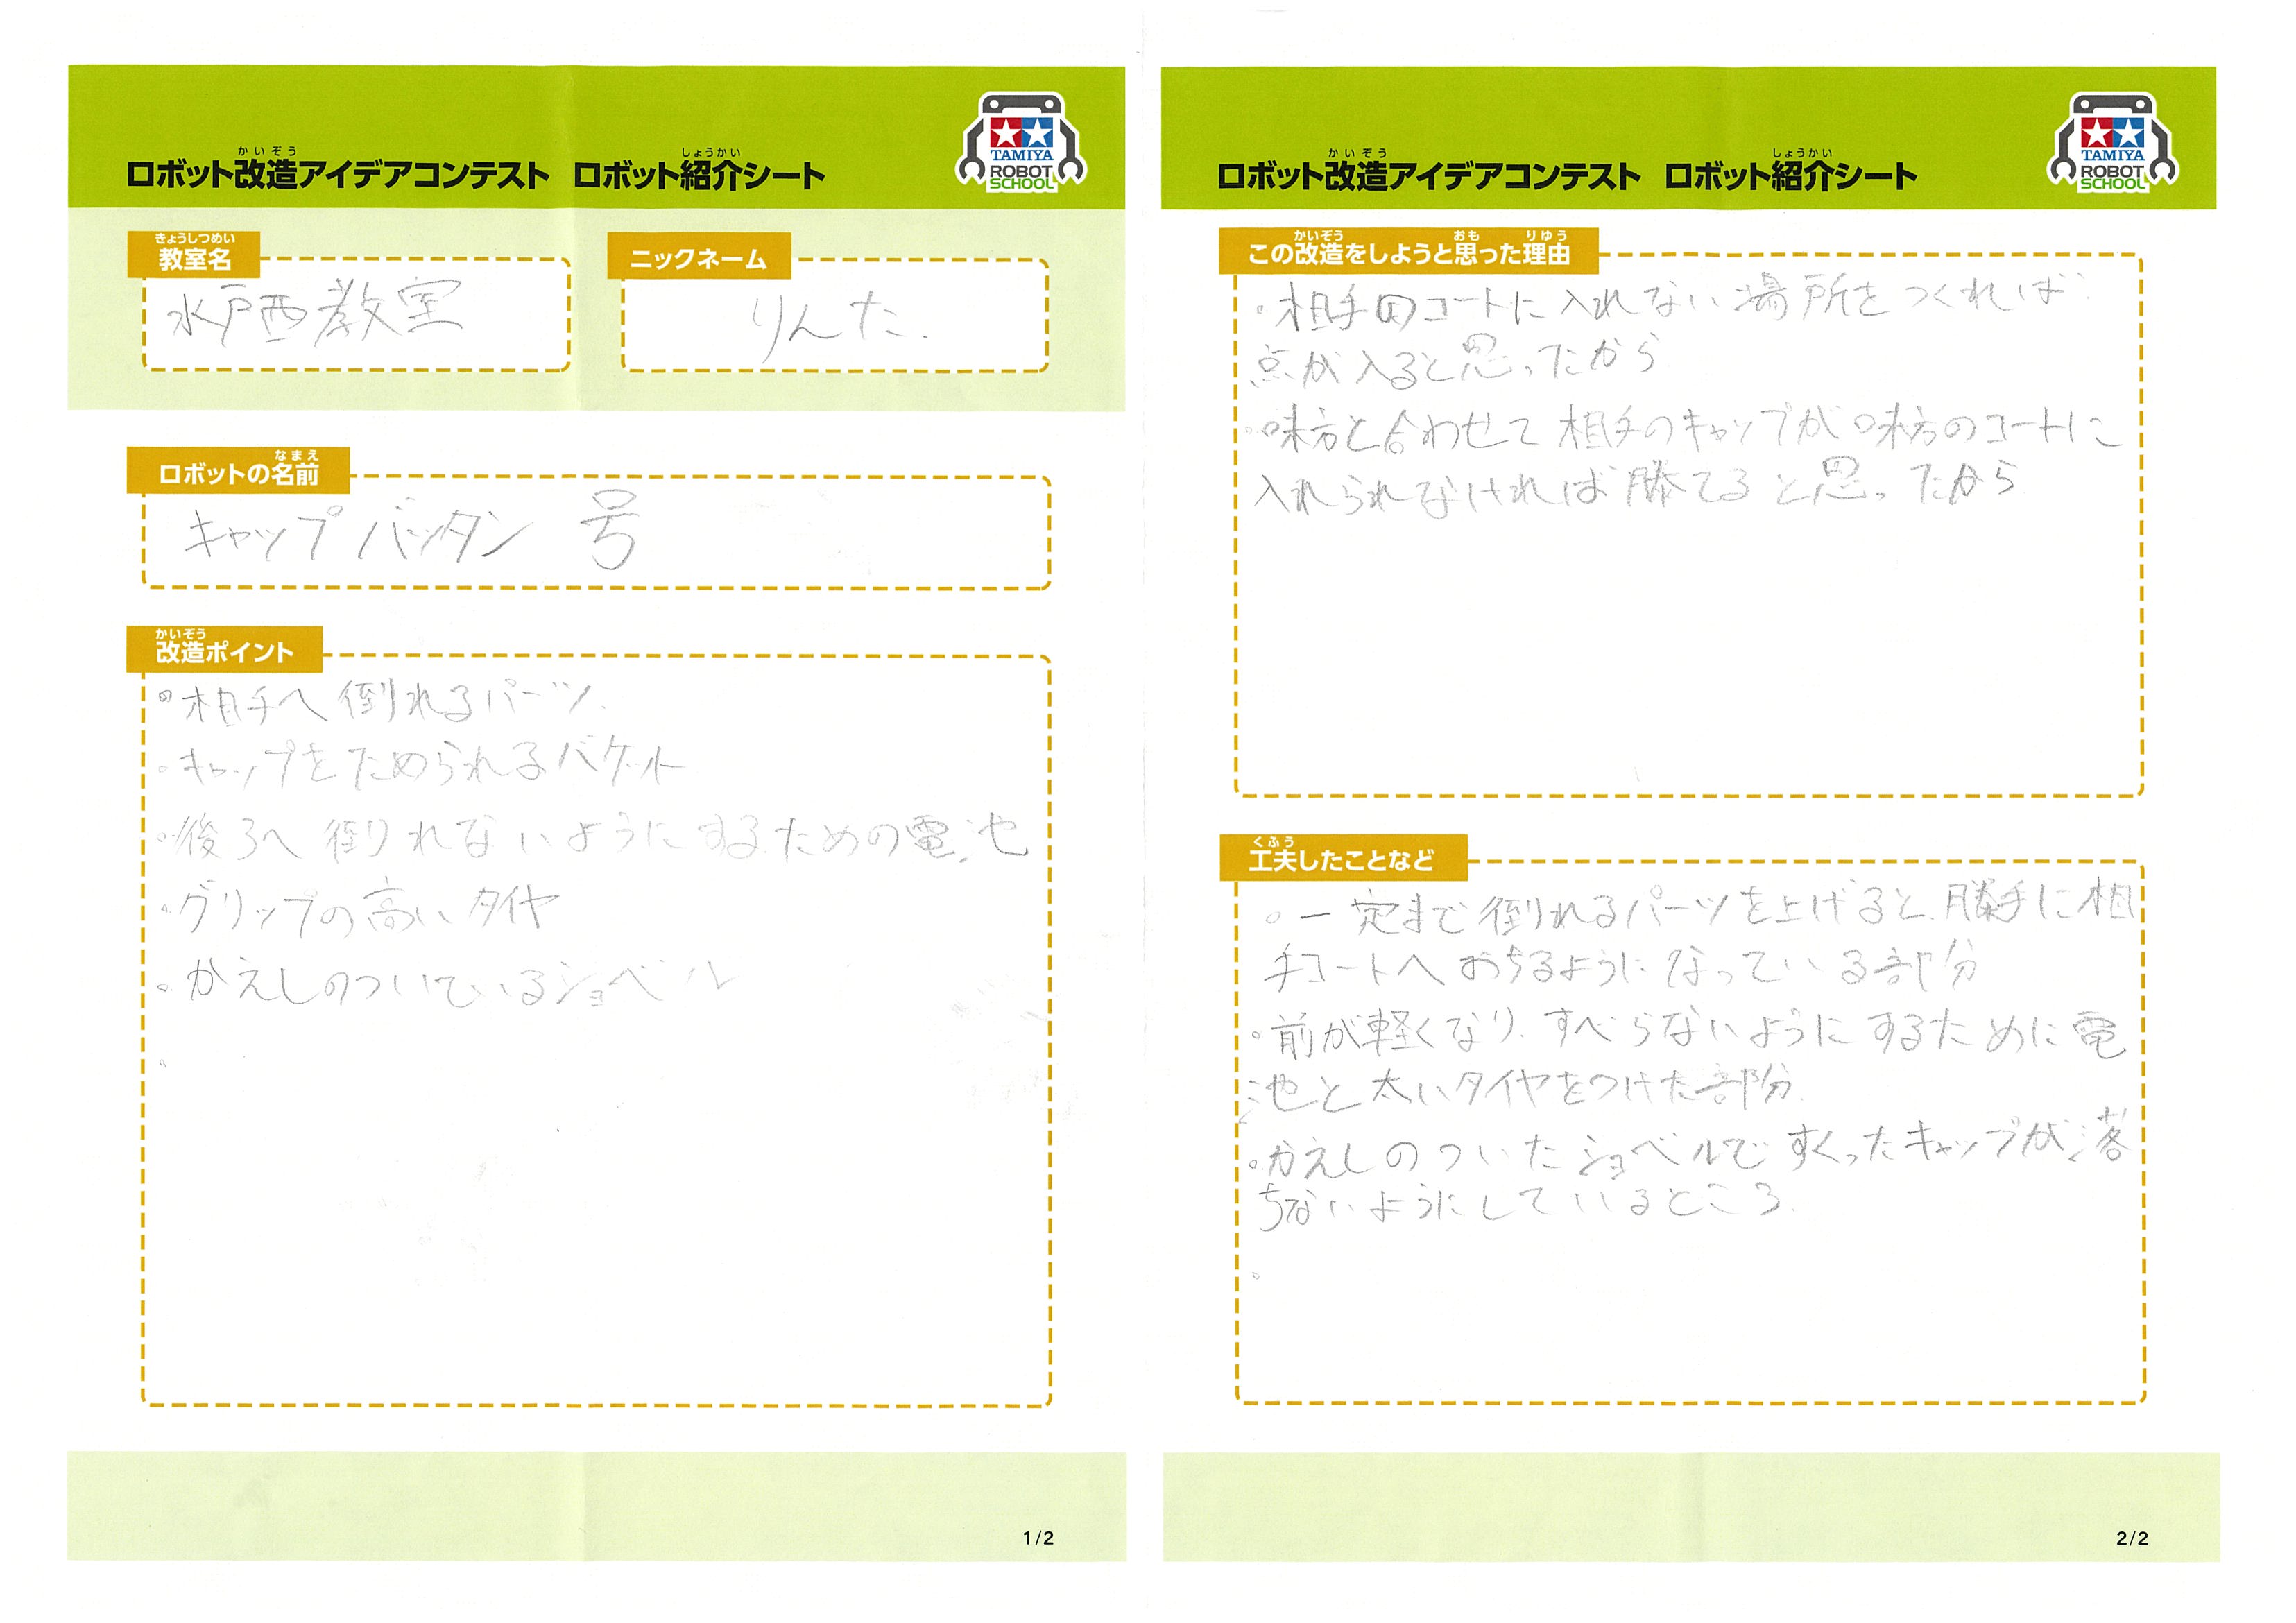 かいぞう しょうかい
ロボット改造アイデアコンテスト ロボット紹介シート
TAMIYA
ROBOT
SCHOOL
きょうしつめい
教室名
水戸西教室
ニックネーム
りんた.
なまえ
ロボットの名前
キャップバッタン 号
かいぞう
改造ポイント
・相手へ倒れるパーツ.
・キャップをためられるバケット
・後ろへ倒れないようにするための電池
・グリップの高いタイヤ
・かえしのついているショベル
。
1/2
かいぞう しょうかい
ロボット改造アイデアコンテスト ロボット紹介シート
TAMIYA
ROBOT
SCHOOL
かいぞう おも りゆう
この改造をしようと思った理由
・相手のコートに入れない場所をつくれば
点が入ると思ったから
・味方と合わせて相手のキャップが味方のコートに
入れられなければ勝てると思ったから
くふう
工夫したことなど
。一定まで倒れるパーツを上げると、勝手に相
手コートへおちるようになっている部分
。前が軽くなり、すべらないようにするために電
池と太いタイヤをつけた部分.
。かえしのついたショベルですくったキャップが落
ちないようにしているところ.
。
2/2